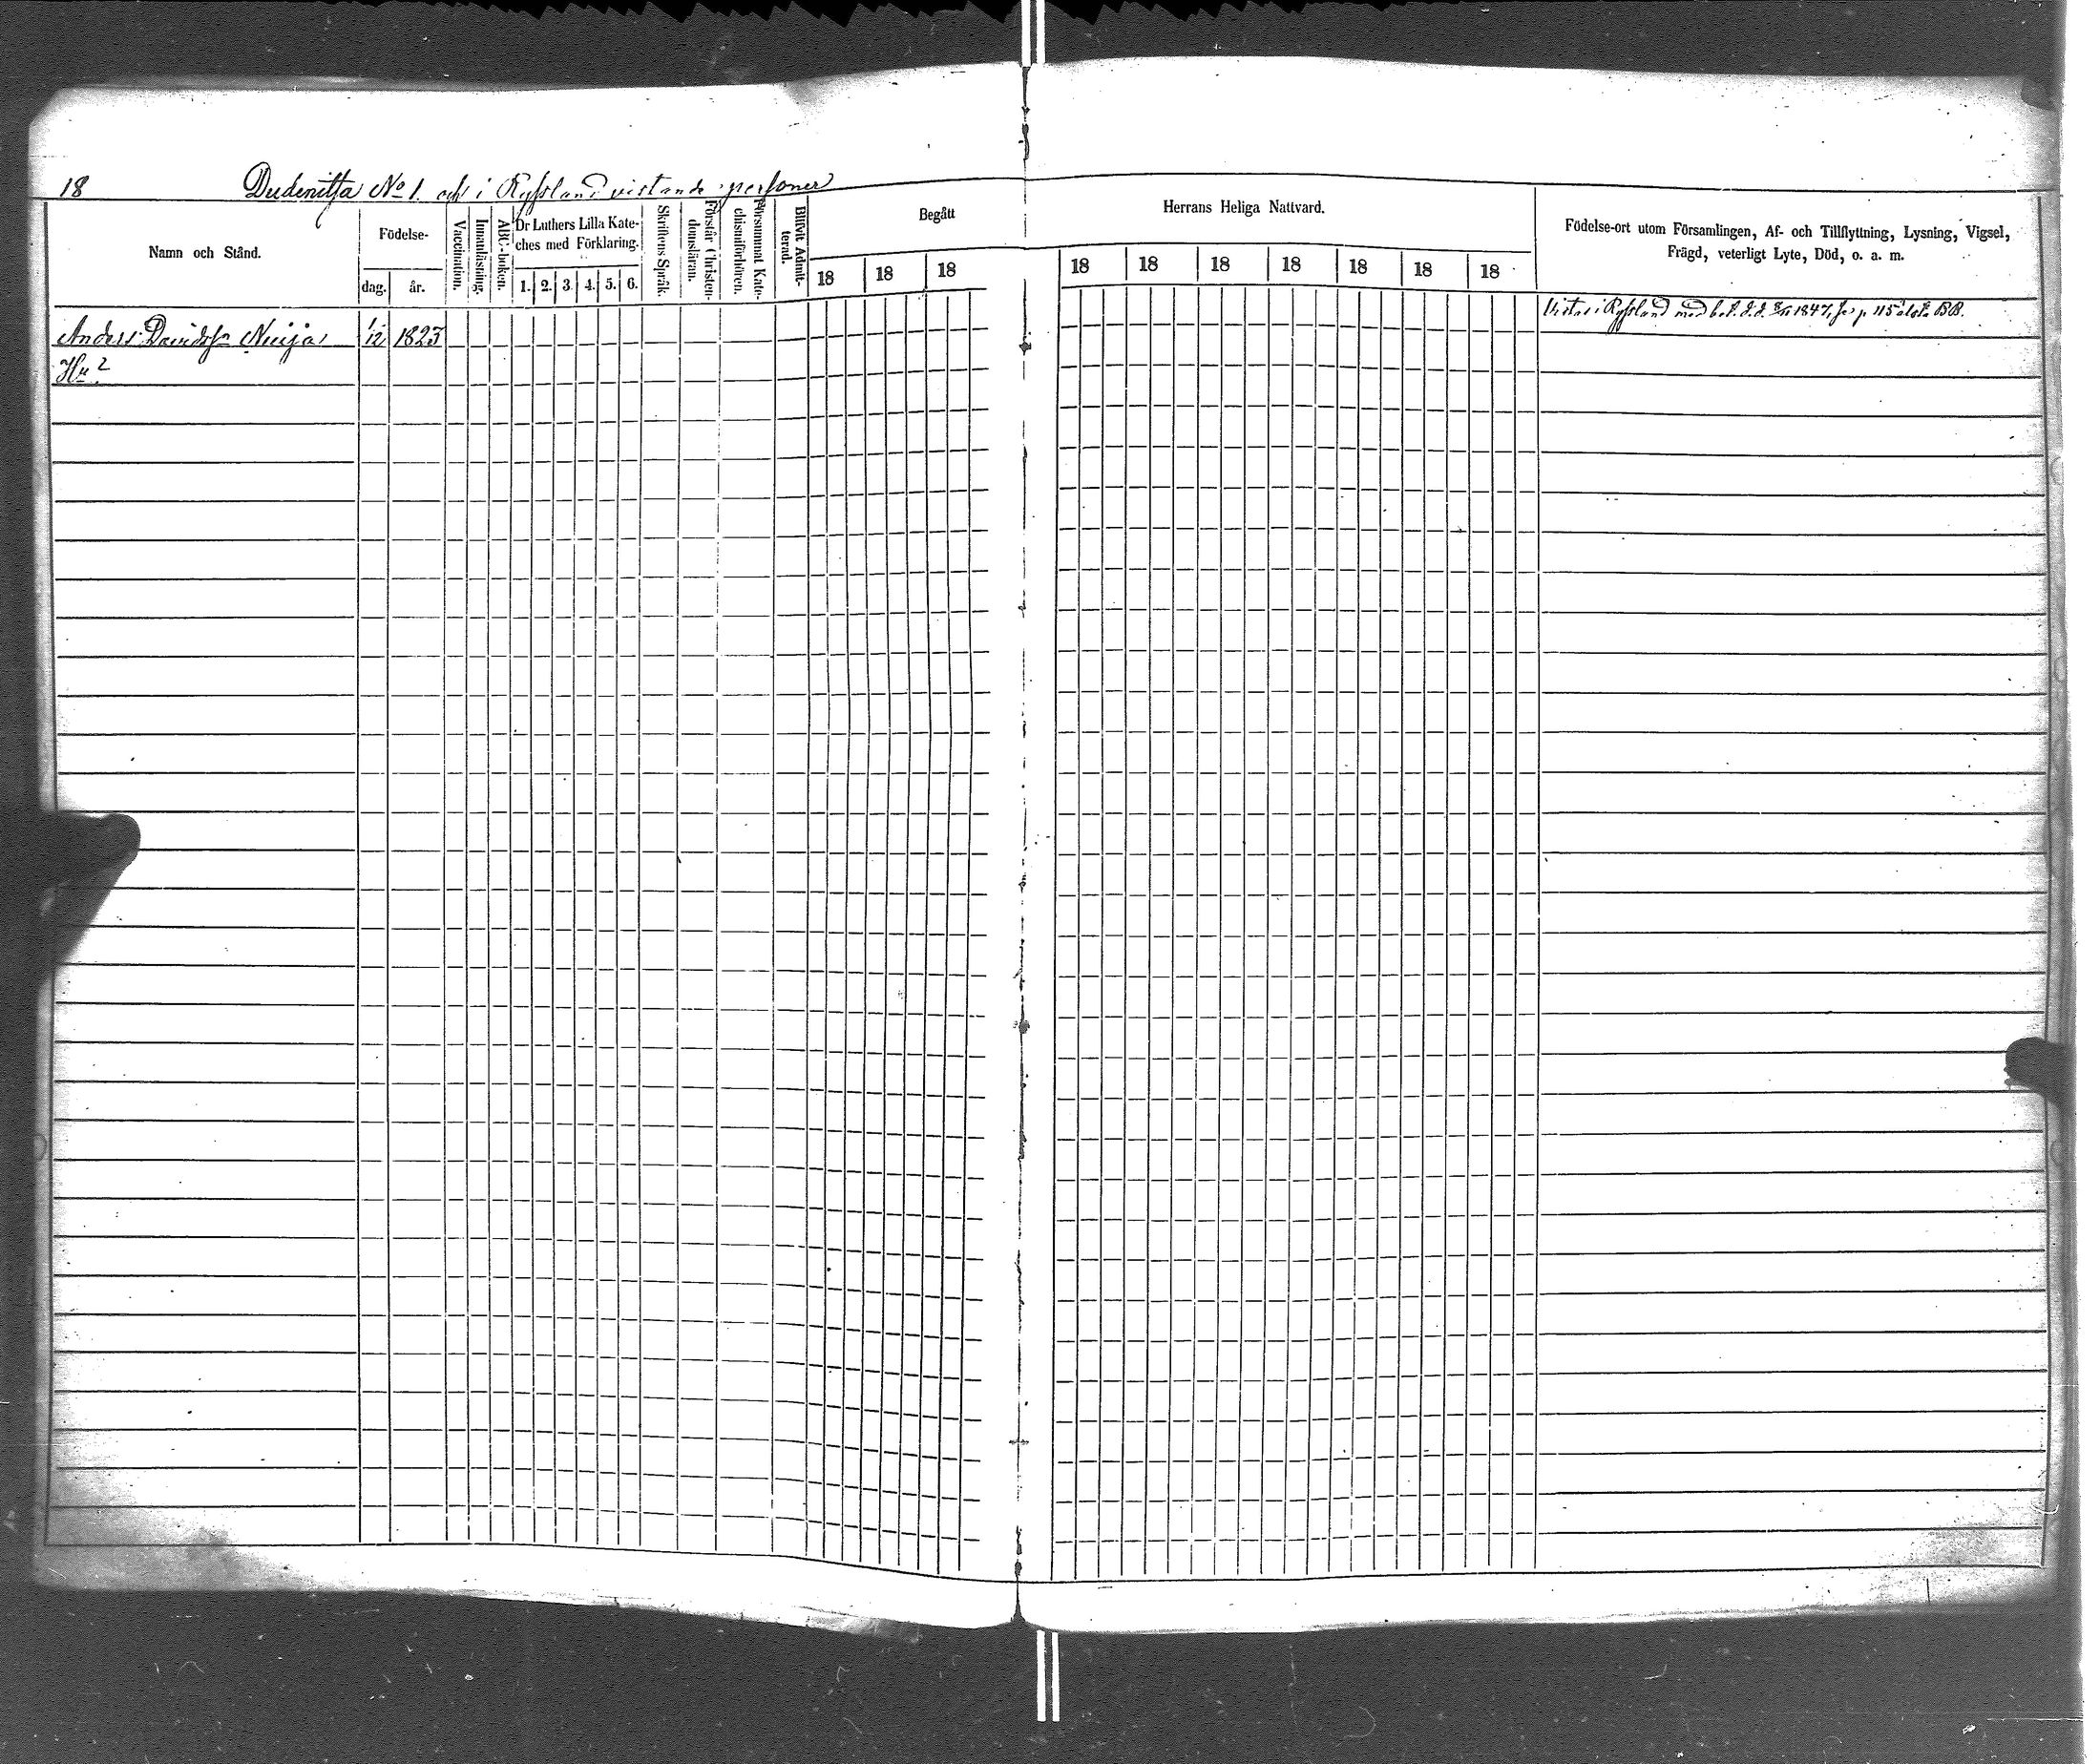 18 Dudenitsa No 1. och i Ryssland vistande personer
Namn och Stånd.
Födelse-
dag. år.
Vaccination.
Innanläsning.
ABC-boken.
Dr Luthers Lilla Kate-
ches med Förklaring.
1. 2. 3. 4. 5. 6.
Skriftens Språk.
Förstår Christen-
domsläran.
Försummat Kate-
chismiförhören.
Blifvit Admit-
terad.
Begått
18 18 18
Herrans Heliga Nattvard.
18 18 18 18 18 18 18
Födelse-ort utom Församlingen, Af- och Tillflyttning, Lysning, Vigsel,
Frägd, veterligt Lyte, Död, o. a. m.
Anders Davidss 1/12 1823 Vistas i Ryssland med bet. d.d. 1847, se p 115 BB.